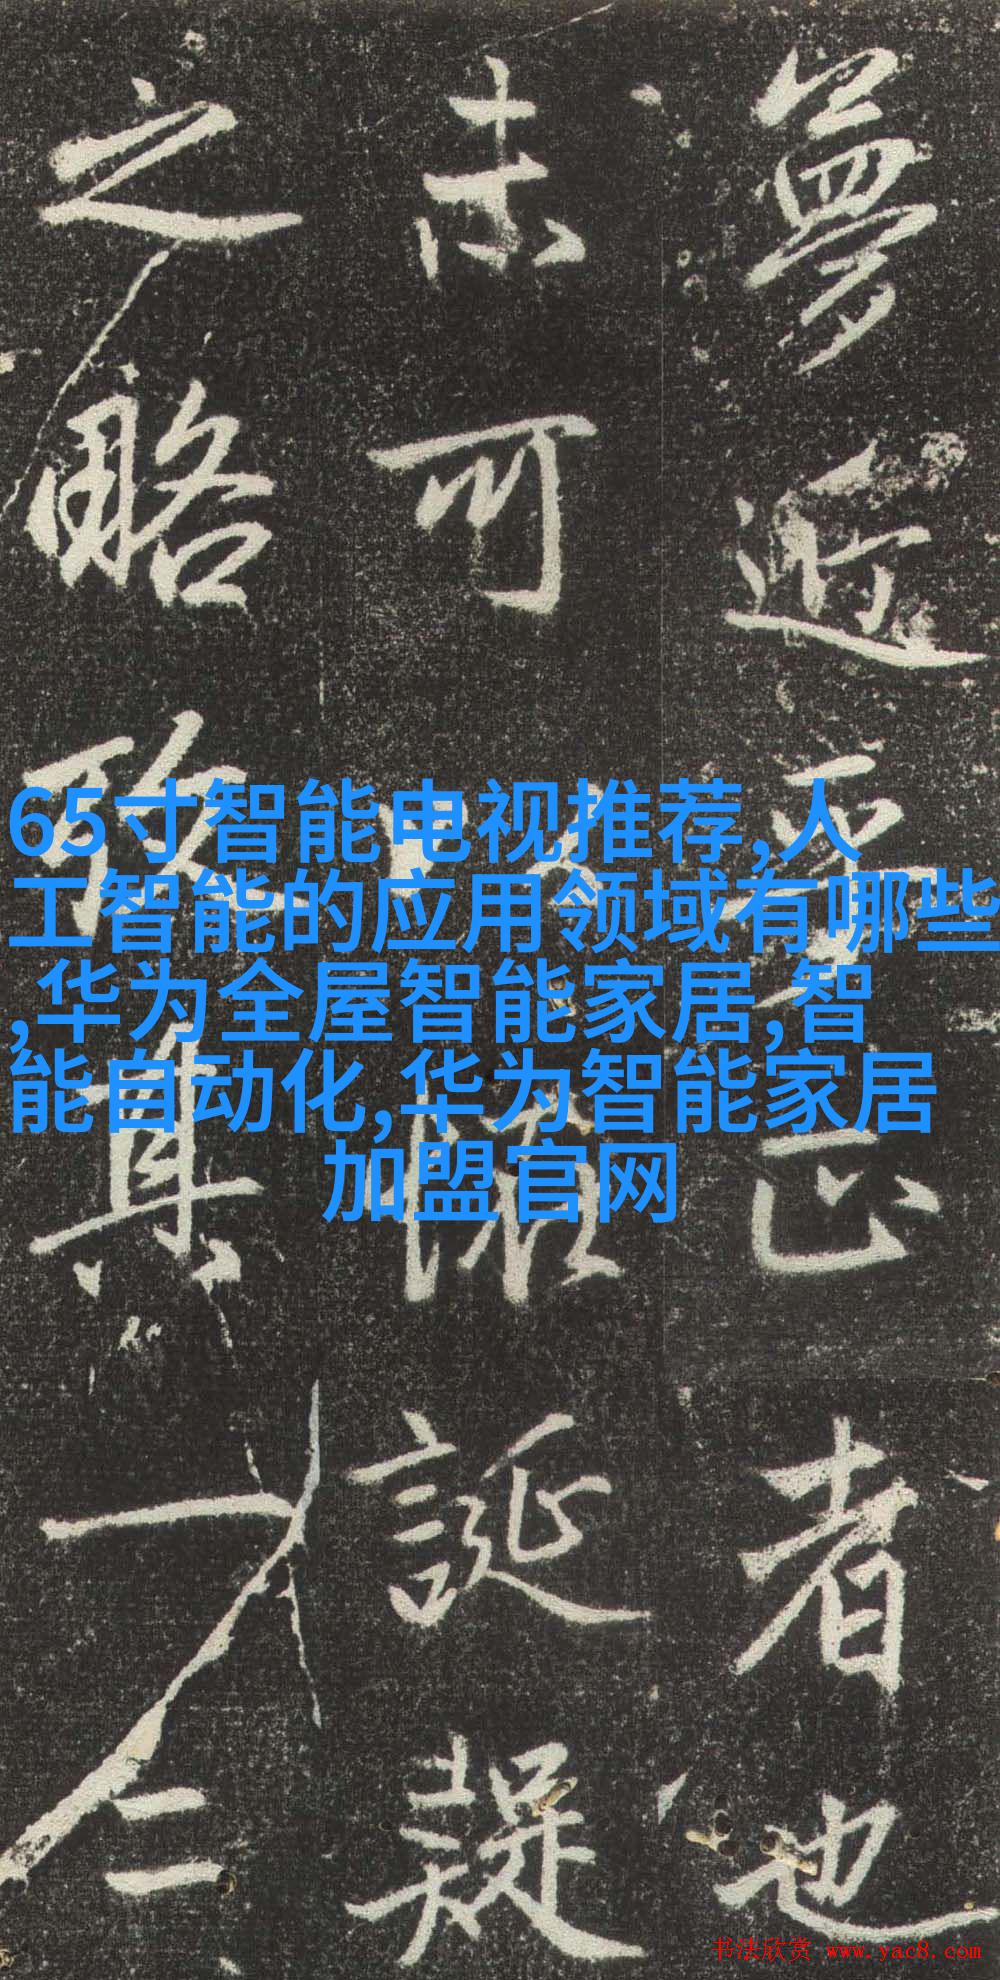 夢近正者也
未可誕疑
之略一
65寸智能电视推荐,人
工智能的应用领域有哪些
,华为全屋智能家居,智
能自动化,华为智能家居
加盟官网
书法欣赏 www.yac8.com